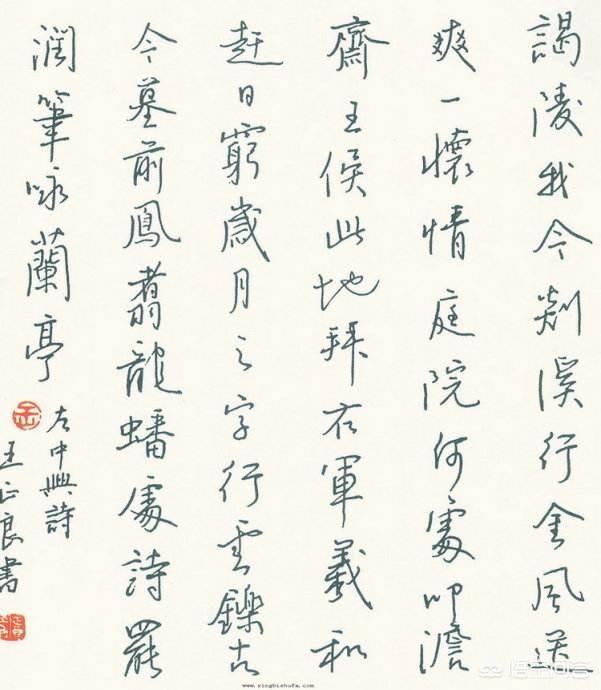 謁陵我今剡溪行金風送
爽一懷情庭院何處叩澹
齋王侯此地拜右軍羲和
赶日窮歲月之字行雲鑠古
今墓前鳳翥龍蟠處詩罷
潤筆咏蘭亭
左中興詩
王正良書
www.yingbishufa.com
悟空问答